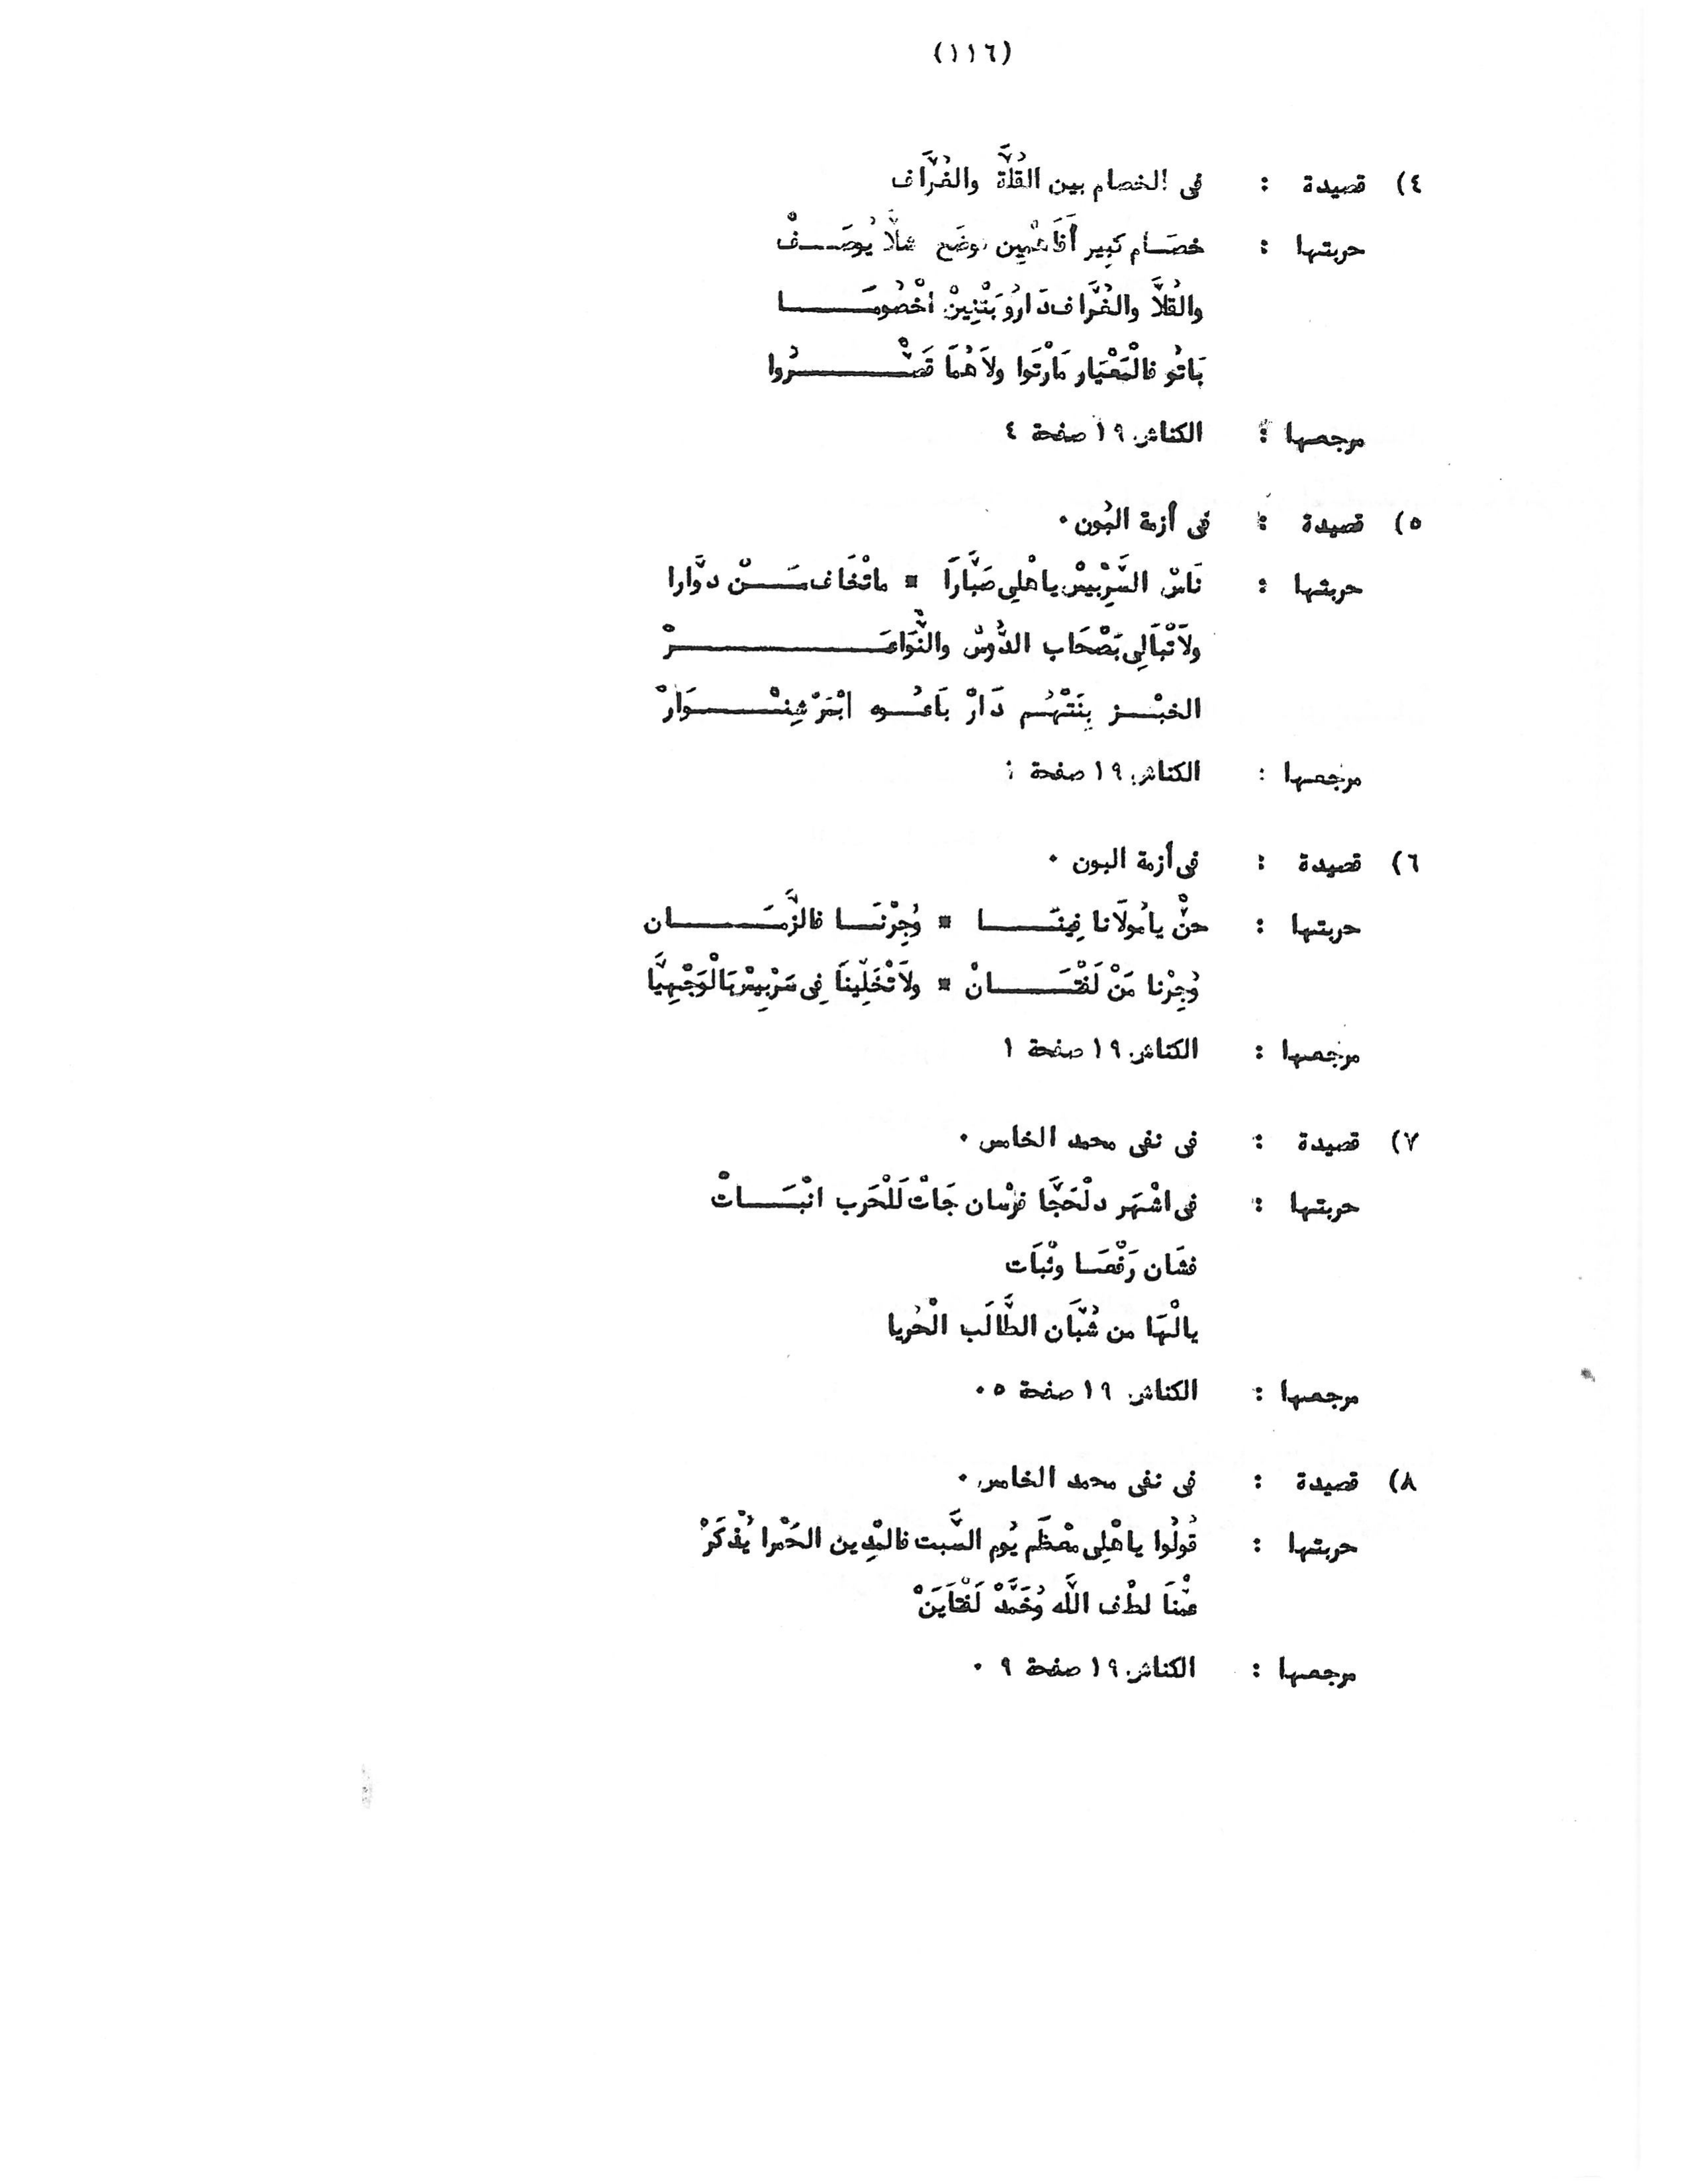 (١١٦)
٤) قصيدة : فى الخصام بين القُلَّة والغُرَّاف
حربتها : خصَام كبِير أَفَاهْمِين وضَع شلاَّ يُوصَفْ
والقُلاَّ والغُرَّاف دَارُو بَتْنِينْ اخْصُومَا
بَاتُو فالْمَعْيَار مَارْتَوا ولاَ هُمَا قَصْرُوا
مرجعها : الكناش ١٩ صفحة ٤
٥) قصيدة : فى أزمة البُون ٠
حربتها : نَاسْ السَّرْبِيسْ ياهْلِى صَبَّارَا * ماتْخَاف مَنْ دوَّارا
ولاَتْبَالِى بَصْحَاب الدُّوسْ والنُّوَاعَرْ
الخبْز بِنَتْهُم دَارْ بَاعُوه ابْتَمَنْ شِنْوَارْ
مرجعها : الكناش ١٩ صفحة
٦) قصيدة : فى أزمة البون ٠
حربتها : حنّْ يامُولاَنا فِينَا * وُجِرْنَا فالزَّمَان
وُجِرْنا مَنْ لَفْتَانْ * ولاَتْخَلِّينَا فِى سَرْبِيسْ بَالْوَجْهِيَّا
مرجعها : الكناش ١٩ صفحة ١
٧) قصيدة : فى نفى محمد الخامس ٠
حربتها : فى اشْهَر دلْحَجَّا فرْسان جَاتْ لَلْحَرب انْبَاتْ
فشَان رَفْعَا وتْبَات
يالْهَا من شُبَّان الطَّالَب الْحُريا
مرجعها : الكناش ١٩ صفحة ٥ ٠
٨) قصيدة : فى نفى محمد الخامس ٠
حربتها : قُولُوا ياهْلِى مْعظَم يُوم السَّبت فالمْدِين الحَمْرا يُذْكَرْ
عمْنَا لطْف اللَّه وُخَمَّدْ لَفْتَايَنْ
مرجعها : الكناش ١٩ صفحة ٩ ٠